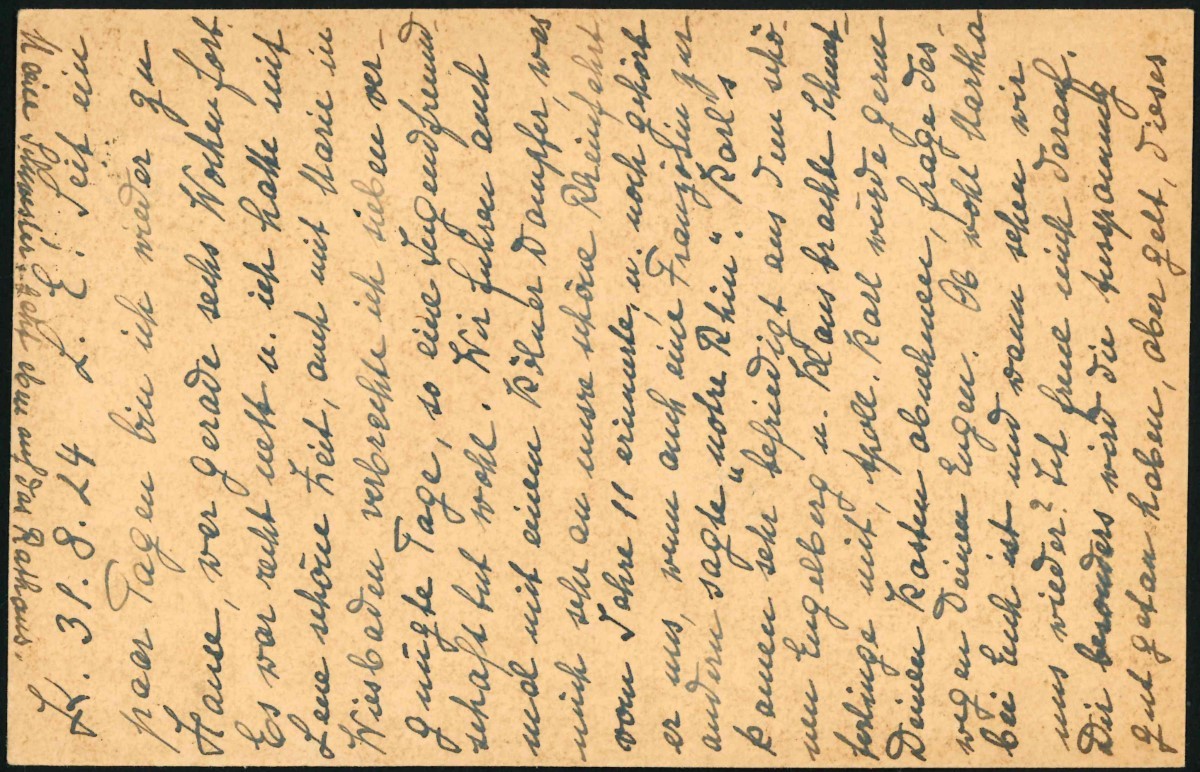 Meine Schwester geht eben auf das Rathaus.
K. 31. 8. 24 L. E.! Seit ein
paar Tagen bin ich wieder zu
Hause, war gerade sechs Wochen fort
Es war recht nett u. ich hatte mit
Lene schöne Zeit, auch mit Marie in
Wiesbaden verbrachte ich sieben ver-
gnügte Tage, so eine Jugendfreund-
schaft tut wohl. Wir fuhren auch
mal mit einem Kölner Dampfer, was
mich sehr an unsre schöne Rheinfahrt
vom Jahre 11 erinnerte, u. noch gehört
er uns, wenn auch eine Französin zur
andern sagte „notre Rhin“. Karl's
kamen sehr befriedigt aus dem schö-
nen Engelberg u. Klaus brachte Schmet-
terlinge mit, toll. Karl würde gern
Deinen Kasten abnehmen, frage des-
wegen Deinen Eugen. Ob wohl Martha
bei Euch ist und wann sehen wir
uns wieder? Ich freue mich darauf.
Die besonders wird die Ausspannung
gut getan haben, aber gelt, dieses